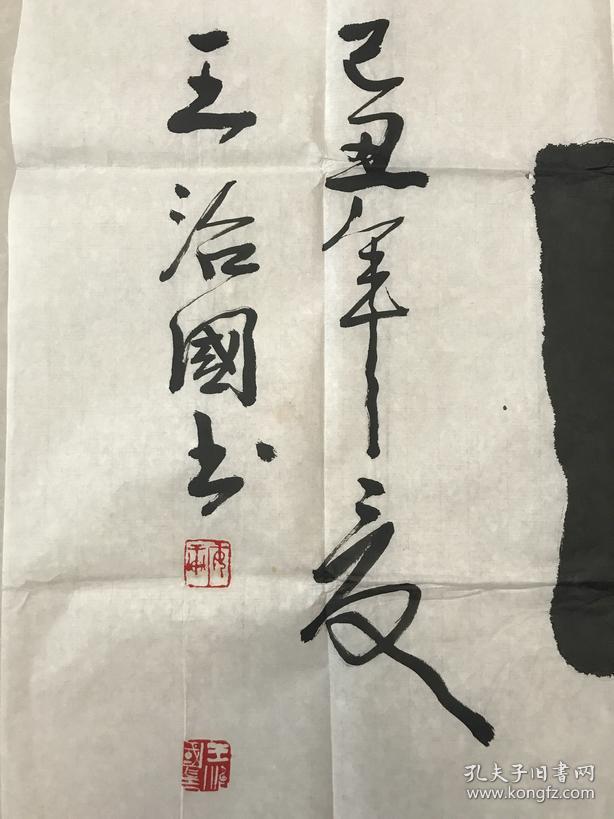 己丑年夏
王治國书
孔夫子旧书网
www.kongfz.com